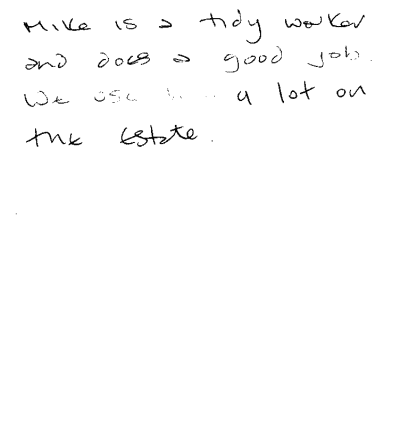 Mike is a tidy worker
and does a good job.
We use a lot on
the Estate.